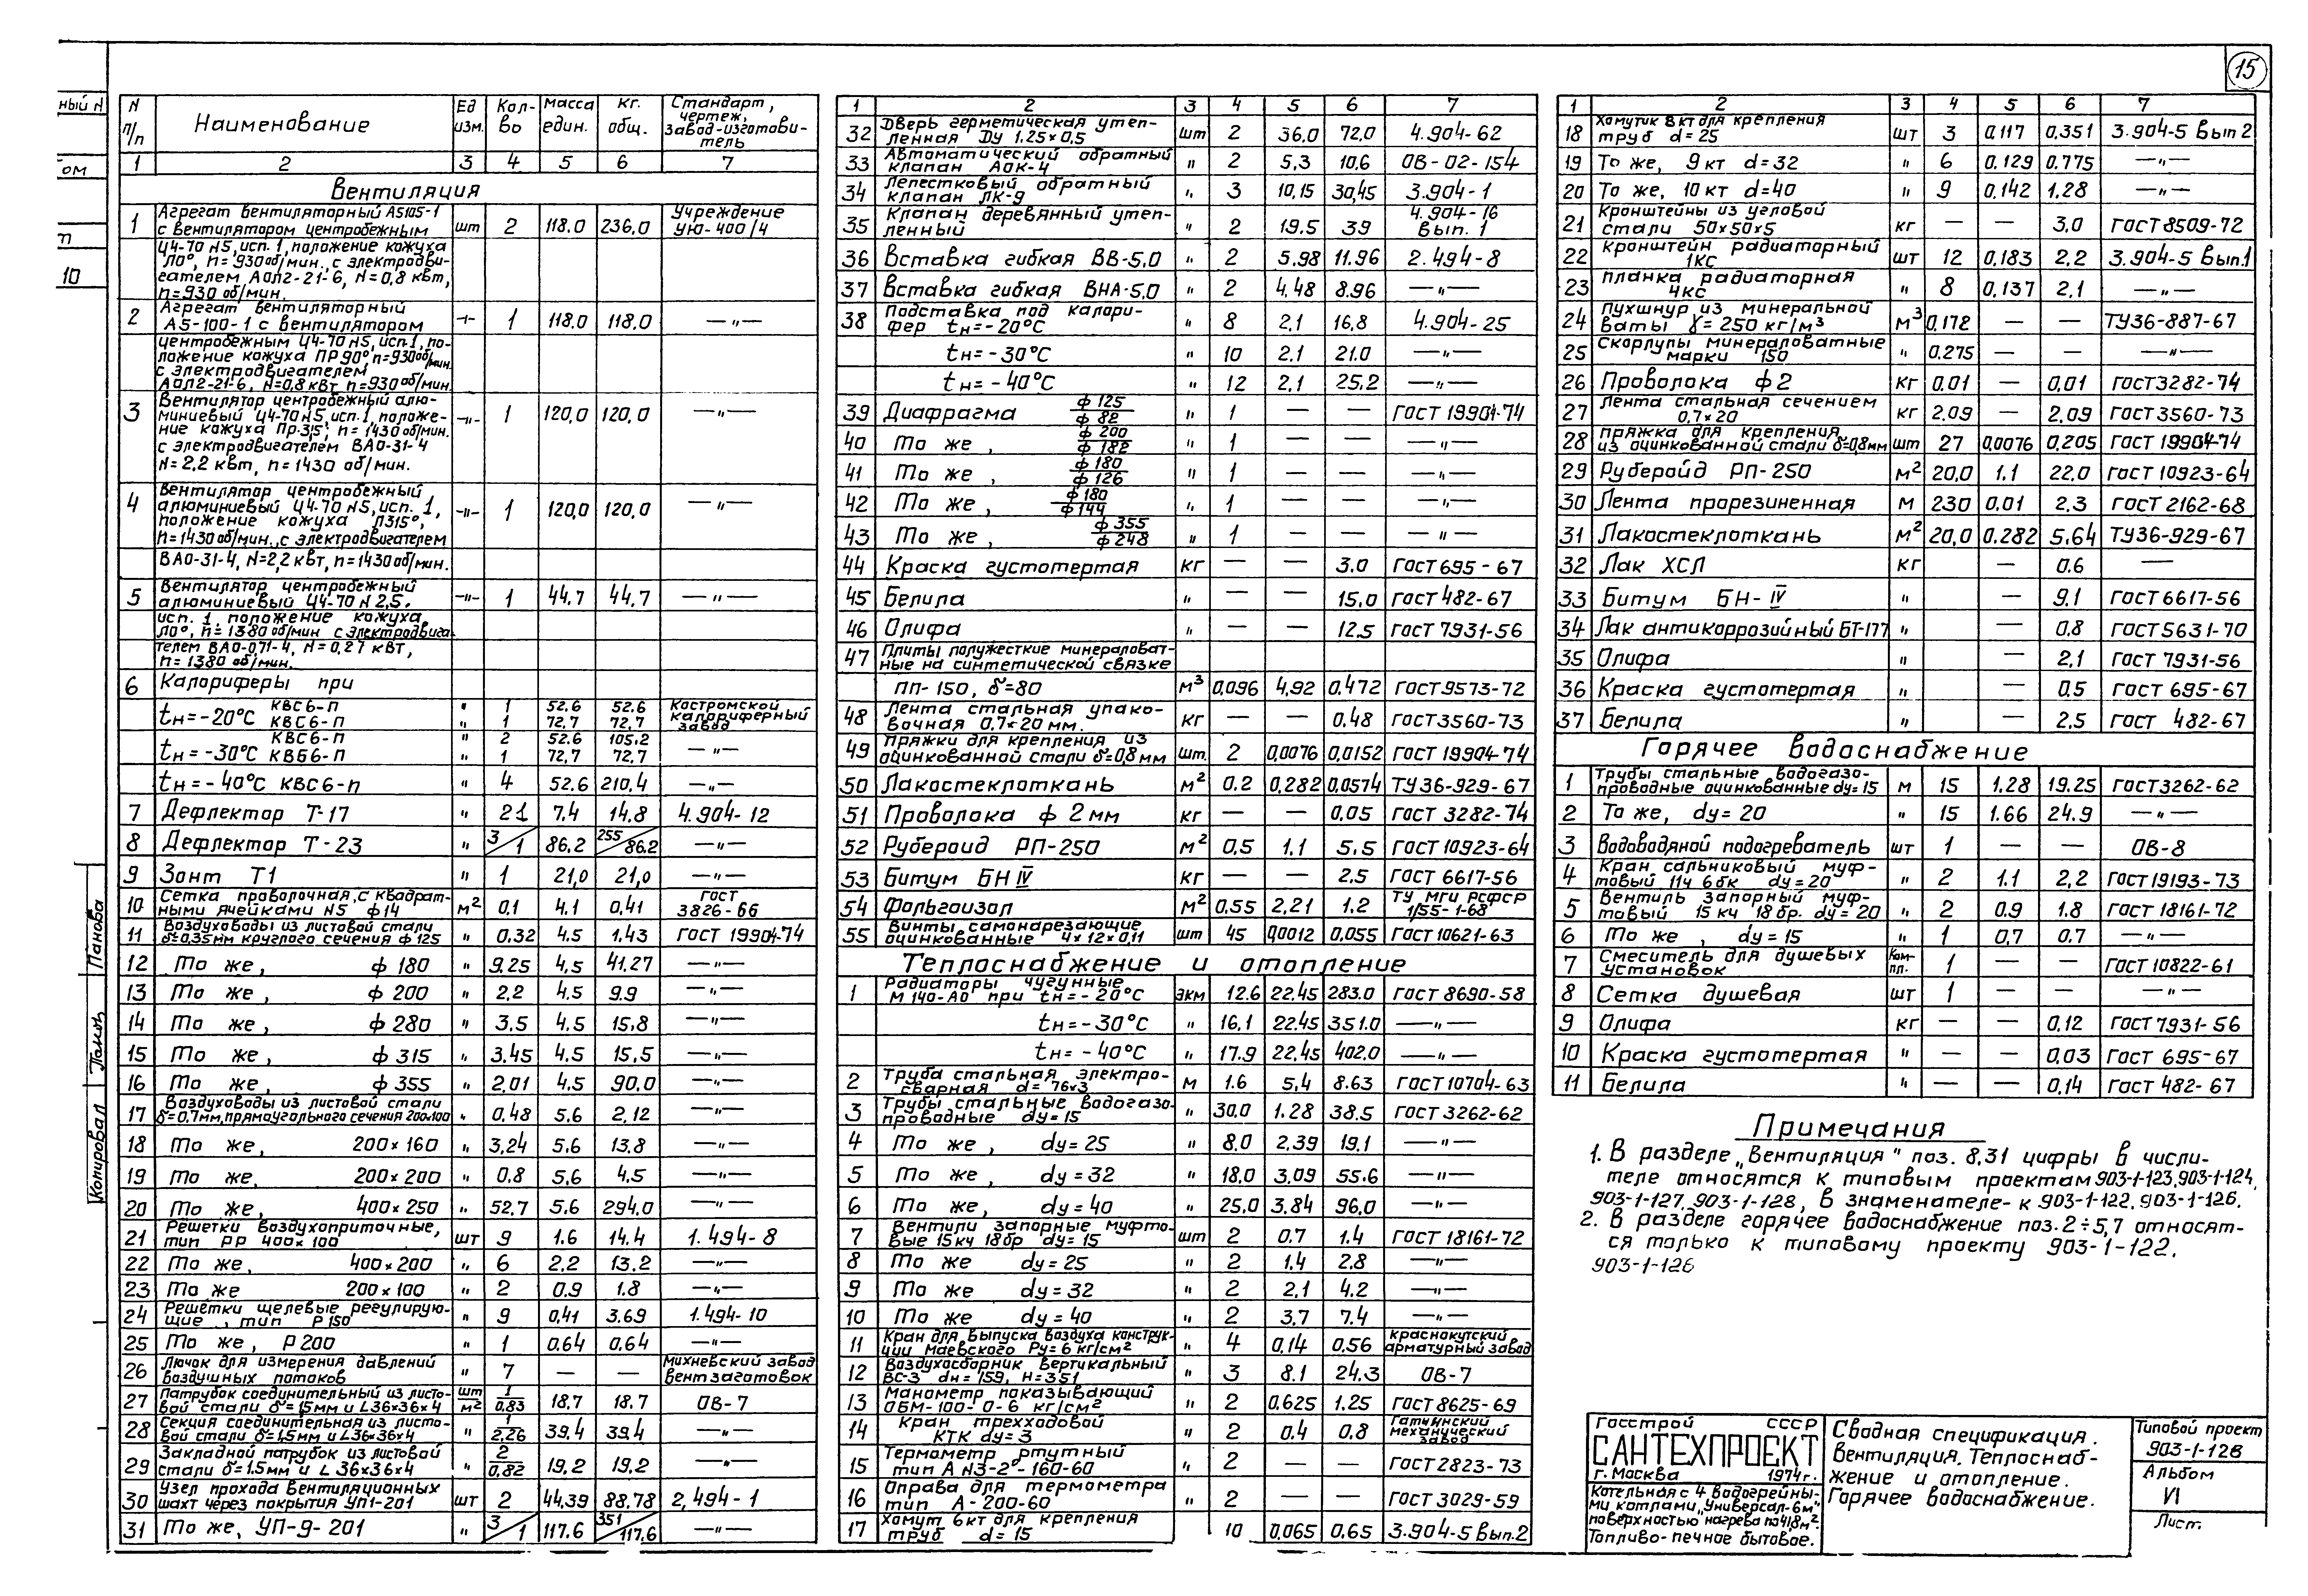 15
ный N
ом
п
10
Панова
Копировал
N п/п Наименование Ед изм. Кол-во Масса един. кг. общ. Стандарт, чертеж, завод-изготовитель
1 2 3 4 5 6 7
Вентиляция
1 Агрегат вентиляторный А5105-1 с вентилятором центробежным шт 2 118.0 236.0 Учреждение УЮ-400/4
Ц4-70 N5, исп. 1, положение кожуха
Л0°, n=930 об/мин., с электродви-
гателем АОЛ2-21-6, N=0,8 кВт,
n=930 об/мин.
2 Агрегат вентиляторный А5-100-1 с вентилятором -"- 1 118.0 118.0 —"—
центробежным Ц4-70 N5, исп.1, по-
ложение кожуха ПР90° n=930 об/мин.
с электродвигателем
АОЛ2-21-6, N=0,8 кВт n=930 об/мин.
3 Вентилятор центробежный алю- -"- 1 120,0 120,0 —"—
миниевый Ц4-70 N5 исп.1, положе-
ние кожуха Пр.315°, n=1430 об/мин.
с электродвигателем ВАО-31-4
N=2,2 кВт, n=1430 об/мин.
4 Вентилятор центробежный -"- 1 120,0 120,0 —"—
алюминиевый Ц4-70 N5, исп. 1,
положение кожуха Л315°,
n=1430 об/мин., с электродвигателем
ВАО-31-4, N=2,2 кВт, n=1430 об/мин.
5 Вентилятор центробежный алюминиевый Ц4-70 N 2,5. -"- 1 44.7 44.7 —"—
исп. 1, положение кожуха
Л0°, n=1380 об/мин с электродвига-
телем ВАО-071-4, N=0,27 кВт,
n=1380 об/мин.
6 Калориферы при
tн=-20°С КВС6-П " 1 52.6 52.6 Костромской калориферный завод
КВС6-П " 1 72.7 72.7
tн=-30°С КВС6-П " 2 52.6 105.2 —"—
КВБ6-П " 1 72.7 72.7
tн=-40°С КВС6-П " 4 52.6 210.4 —"—
7 Дефлектор Т-17 " 21 7.4 14.8 4.904-12
8 Дефлектор Т-23 " 3/1 86.2 255/86.2 —"—
9 Зонт Т1 " 1 21,0 21,0 —"—
10 Сетка проволочная, с квадрат-ными ячейками N5 ф14 м² 0,1 4.1 0,41 ГОСТ 3826-66
11 Воздуховоды из листовой стали δ=0,35мм круглого сечения ф 125 " 0,32 4.5 1,43 ГОСТ 19904-74
12 То же, ф 180 " 9.25 4,5 41.27 —"—
13 То же, ф 200 " 2,2 4.5 9.9 —"—
14 То же, ф 280 " 3,5 4.5 15,8 —"—
15 То же, ф 315 " 3,45 4.5 15,5 —"—
16 То же, ф 355 " 2,01 4.5 90,0 —"—
17 Воздуховоды из листовой стали δ=0,7мм, прямоугольного сечения 200×100 " 0,48 5.6 2,12 —"—
18 То же, 200×160 " 3,24 5.6 13.8 —"—
19 То же, 200×200 " 0.8 5,6 4,5 —"—
20 То же, 400×250 " 52,7 5.6 294,0 —"—
21 Решетки воздухоприточные, тип РР 400×100 шт 9 1.6 14.4 1.494-8
22 То же, 400×200 " 6 2,2 13,2 —"—
23 То же 200×100 " 2 0.9 1.8 —"—
24 Решетки щелевые регулирую-щие, тип Р150 " 9 0,41 3.69 1.494-10
25 То же, Р200 " 1 0.64 0.64 —"—
26 Лючок для измерения давлений воздушных потоков " 7 — — Михневский завод вентзаготовок
27 Патрубок соединительный из листо-вой стали δ=1,5мм и L36×36×4 шт/м² 1/0,83 18,7 18.7 ОВ-7
28 Секция соединительная из листо-вой стали δ=1,5мм и L36×36×4 " 1/2,26 39,4 39,4 —"—
29 Закладной патрубок из листовой стали δ=1.5мм и L 36×36×4 " 2/0,82 19,2 19,2 —"—
30 Узел прохода вентиляционных шахт через покрытия УП1-201 шт 2 44,39 88,78 2,494-1
31 То же, УП-9-201 " 3/1 117.6 351/117.6 —"—
1 2 3 4 5 6 7
32 Дверь герметическая утеп-ленная Ду 1.25×0,5 шт 2 36,0 72,0 4.904-62
33 Автоматический обратный клапан АОК-4 " 2 5,3 10,6 ОВ-02-154
34 Лепестковый обратный клапан ЛК-9 " 3 10,15 30,45 3.904-1
35 Клапан деревянный утеп-ленный " 2 19.5 39 4.904-16 Вып. 1
36 Вставка гибкая ВВ-5,0 " 2 5.98 11.96 2.494-8
37 Вставка гибкая ВНА-5,0 " 2 4.48 8.96 —"—
38 Подставка под калори-фер tн=-20°С " 8 2.1 16,8 4.904-25
tн=-30°С " 10 2.1 21.0 —"—
tн=-40°С " 12 2,1 25.2 —"—
39 Диафрагма ф 125/ф 82 " 1 — — ГОСТ 19904-74
40 То же, ф 200/ф 182 " 1 — — —"—
41 То же, ф 180/ф 126 " 1 — — —"—
42 То же, ф 180/ф 144 " 1 — — —"—
43 То же, ф 355/ф 248 " 1 — — —"—
44 Краска густотертая кг — — 3.0 ГОСТ 695-67
45 Белила " — — 15.0 ГОСТ 482-67
46 Олифа " — — 12,5 ГОСТ 7931-56
47 Плиты полужесткие минераловат-ные на синтетической связке
ПП-150, δ=80 м³ 0,096 4,92 0.472 ГОСТ 9573-72
48 Лента стальная упако-вочная 0.7×20 мм. кг — — 0.48 ГОСТ 3560-73
49 Пряжки для крепления из оцинкованной стали δ=0,8 мм шт. 2 0,0076 0,0152 ГОСТ 19904-74
50 Лакостеклоткань м² 0.2 0,282 0,0574 ТУ 36-929-67
51 Проволока ф 2 мм кг — — 0,05 ГОСТ 3282-74
52 Рубероид РП-250 м² 0,5 1,1 5,5 ГОСТ 10923-64
53 Битум БН IV кг — — 2,5 ГОСТ 6617-56
54 Фольгоизол м² 0,55 2,21 1.2 ТУ МГИ РСФСР 1/55-1-68
55 Винты самонарезающие оцинкованные 4×12×0,11 шт 45 0,0012 0.055 ГОСТ 10621-63
Теплоснабжение и отопление
1 Радиаторы чугунные М 140-АО при tн=-20°С экм 12.6 22.45 283.0 ГОСТ 8690-58
tн=-30°С " 16,1 22.45 351.0 —"—
tн=-40°С " 17.9 22,45 402.0 —"—
2 Труба стальная электро-сварная d=76×3 м 1.6 5,4 8.63 ГОСТ 10704-63
3 Трубы стальные водогазо-проводные dу=15 " 30,0 1.28 38.5 ГОСТ 3262-62
4 То же, dу=25 " 8.0 2,39 19,1 —"—
5 То же, dу=32 " 18,0 3,09 55.6 —"—
6 То же, dу=40 " 25,0 3.84 96,0 —"—
7 Вентили запорные муфто-вые 15кч 18бр dу=15 шт 2 0.7 1.4 ГОСТ 18161-72
8 То же dу=25 " 2 1.4 2.8 —"—
9 То же dу=32 " 2 2,1 4.2 —"—
10 То же dу=40 " 2 3,7 7.4 —"—
11 Кран для выпуска воздуха конструк-ции Маевского Ру=6 кг/см² " 4 0,14 0.56 Краснокутский арматурный завод
12 Воздухосборник вертикальный ВС-3 dн=159, Н=351 " 3 8.1 24.3 ОВ-7
13 Манометр показывающий ОБМ-100-0-6 кг/см² " 2 0.625 1.25 ГОСТ 8625-69
14 Кран трехходовой КТК dу=3 " 2 0.4 0,8 Гатчинский механический завод
15 Термометр ртутный тип А N3-2°-160-60 " 2 — — ГОСТ 2823-73
16 Оправа для термометра тип А-200-60 " 2 — — ГОСТ 3029-59
17 Хомут 6кт для крепления труб d=15 10 0,065 0.65 3.904-5 Вып.2
1 2 3 4 5 6 7
18 Хомутик 8 кт для крепления труб d=25 шт 3 0.117 0,351 3.904-5 Вып 2
19 То же, 9 кт d=32 " 6 0.129 0.775 —"—
20 То же, 10 кт d=40 " 9 0,142 1,28 —"—
21 Кронштейны из угловой стали 50×50×5 кг — — 3,0 ГОСТ 8509-72
22 Кронштейн радиаторный 1КС шт 12 0,183 2.2 3.904-5 Вып.1
23 Планка радиаторная 4кс " 8 0,137 2.1 —"—
24 Пухшнур из минеральной ваты γ=250 кг/м³ м³ 0,178 — — ТУ36-887-67
25 Скорлупы минераловатные марки 150 " 0.275 — — —"—
26 Проволока ф 2 кг 0.01 — 0,01 ГОСТ 3282-74
27 Лента стальная сечением 0,7×20 кг 2.09 — 2,09 ГОСТ 3560-73
28 Пряжка для крепления из оцинкованной стали δ=0,8мм шт 27 0,0076 0,205 ГОСТ 19904-74
29 Рубероид РП-250 м² 20,0 1.1 22.0 ГОСТ 10923-64
30 Лента прорезиненная м 230 0.01 2.3 ГОСТ 2162-68
31 Лакостеклоткань м² 20,0 0.282 5,64 ТУ36-929-67
32 Лак ХСЛ кг — 0.6 —
33 Битум БН-IV " — 9,1 ГОСТ 6617-56
34 Лак антикоррозийный БТ-177 " — 0.8 ГОСТ 5631-70
35 Олифа " — 2,1 ГОСТ 7931-56
36 Краска густотертая " — 0.5 ГОСТ 695-67
37 Белила " — 2.5 ГОСТ 482-67
Горячее водоснабжение
1 Трубы стальные водогазо-проводные оцинкованные dу=15 м 15 1.28 19.25 ГОСТ 3262-62
2 То же, dу=20 " 15 1.66 24.9 —"—
3 Водоводяной подогреватель шт 1 — — ОВ-8
4 Кран сальниковый муф-товый 11ч 6бк dу=20 " 2 1.1 2,2 ГОСТ 19193-73
5 Вентиль запорный муф-товый 15 кч 18 бр. dу=20 " 2 0.9 1.8 ГОСТ 18161-72
6 То же, dу=15 " 1 0,7 0.7 —"—
7 Смеситель для душевых установок Ком-пл. 1 — — ГОСТ 10822-61
8 Сетка душевая шт 1 — — —"—
9 Олифа кг — — 0,12 ГОСТ 7931-56
10 Краска густотертая " — — 0,03 ГОСТ 695-67
11 Белила " — — 0,14 ГОСТ 482-67
Примечания
1. В разделе „Вентиляция" поз. 8,31 цифры в числи-
теле относятся к типовым проектам 903-1-123, 903-1-124,
903-1-127, 903-1-128, в знаменателе - к 903-1-122, 903-1-126.
2. В разделе горячее водоснабжение поз. 2÷5,7 относят-
ся только к типовому проекту 903-1-122.
903-1-126
Госстрой СССР
САНТЕХПРОЕКТ
г. Москва 1974г.
Котельная с 4 водогрейны-
ми котлами „Универсал-6м"
поверхностью нагрева по 41,8м².
Топливо-печное бытовое.
Сводная спецификация.
Вентиляция. Теплоснаб-
жение и отопление.
Горячее водоснабжение.
Типовой проект
903-1-128
Альбом
VI
Лист.